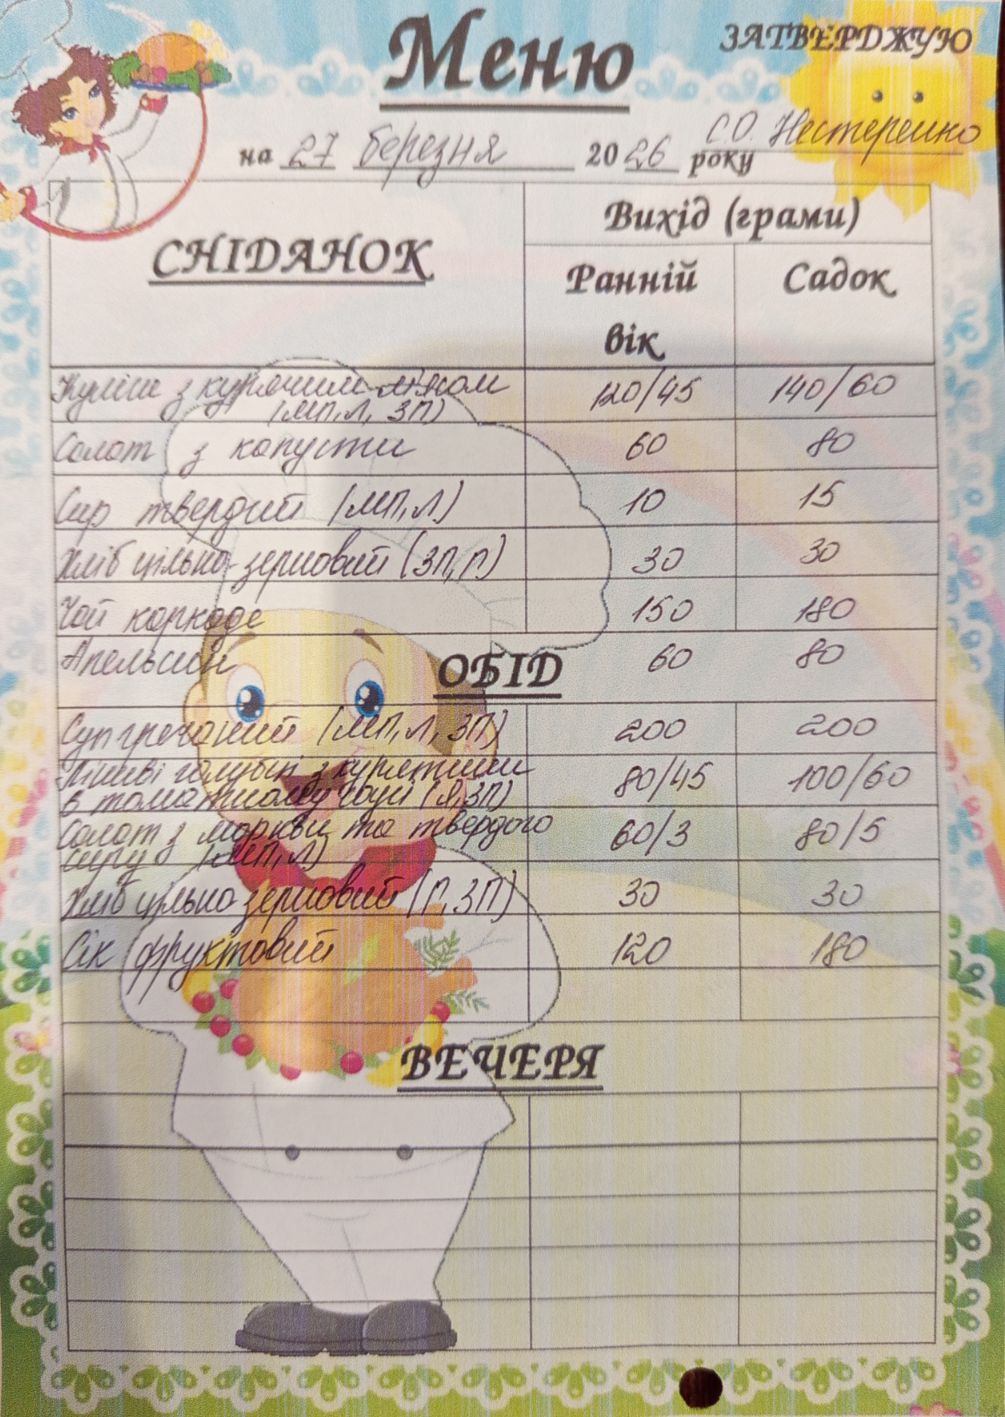 Меню
ЗАТВЕРДЖУЮ
С.О. Нестеренко
на 27 березня 2026 року
СНІДАНОК
Вихід (грами)
Ранній вік
Садок
Куліш з курячим м'ясом 120/45 140/60
(МП, Л, ЗП)
Салат з капусти 60 80
Сир твердий (МП, Л) 10 15
Хліб цільно-зерновий (ЗП, П) 30 30
Чай каркаде 150 180
Апельсин 60 80
ОБІД
Суп гречаний (МП, Л, ЗП) 200 200
Ліниві голубці з курятини 80/45 100/60
в томатному соусі (Я, ЗП)
Салат з моркви та твердого 60/3 80/5
сиру (МП, Л)
Хліб цільно зерновий (П, ЗП) 30 30
Сік фруктовий 120 180
ВЕЧЕРЯ